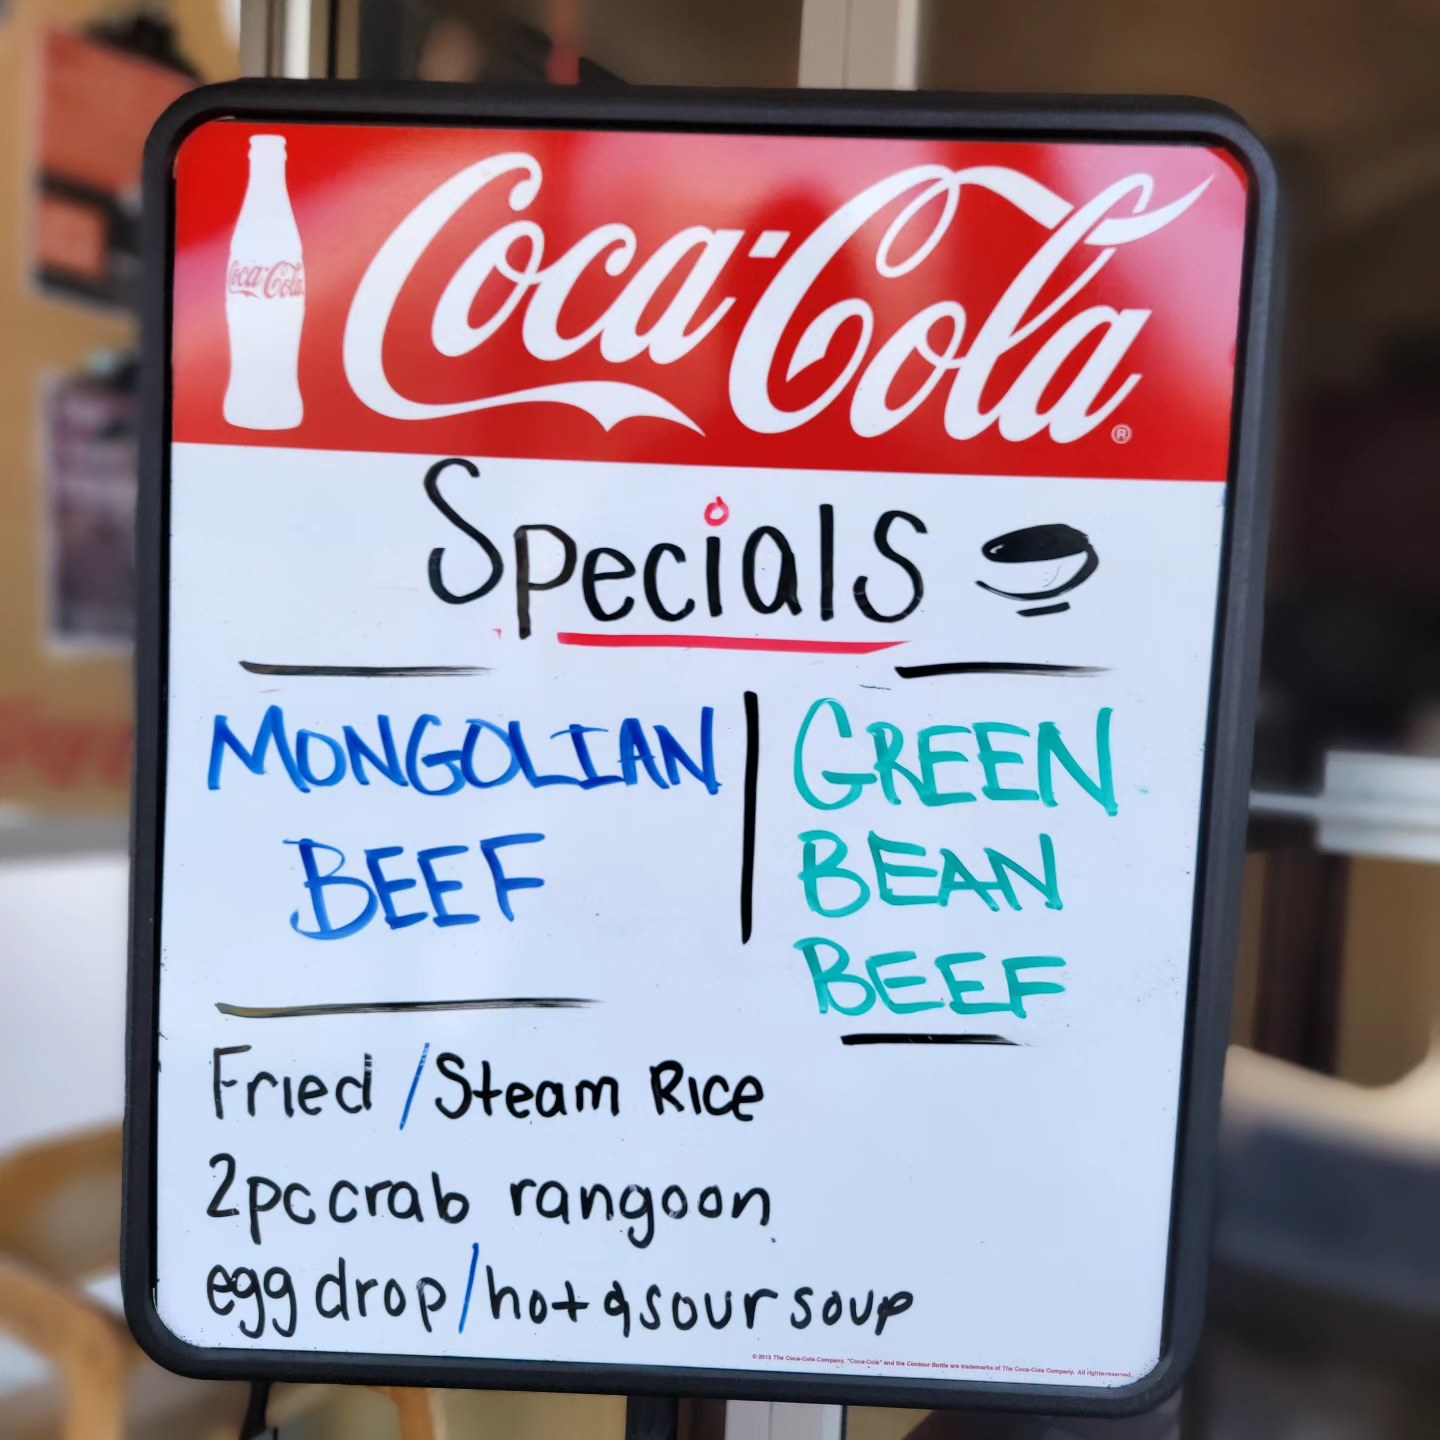 Coca-Cola
Coca-Cola®
Specials
MONGOLIAN
BEEF
GREEN
BEAN
BEEF
Fried / Steam Rice
2pc crab rangoon
egg drop / hot & sour soup
© 2013 The Coca-Cola Company. "Coca-Cola" and the Contour Bottle are trademarks of The Coca-Cola Company. All rights reserved.